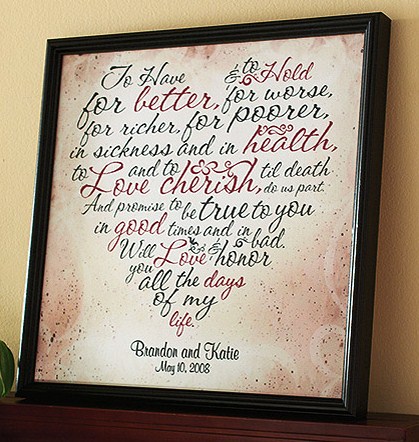 To Have & to Hold
for better, for worse,
for richer, for poorer,
in sickness and in health,
to Love and to cherish, til death
do us part.
And promise to be true to you
in good times and in bad.
Will Love & honor
you
all the days
of my
life.
Brandon and Katie
May 10, 2008